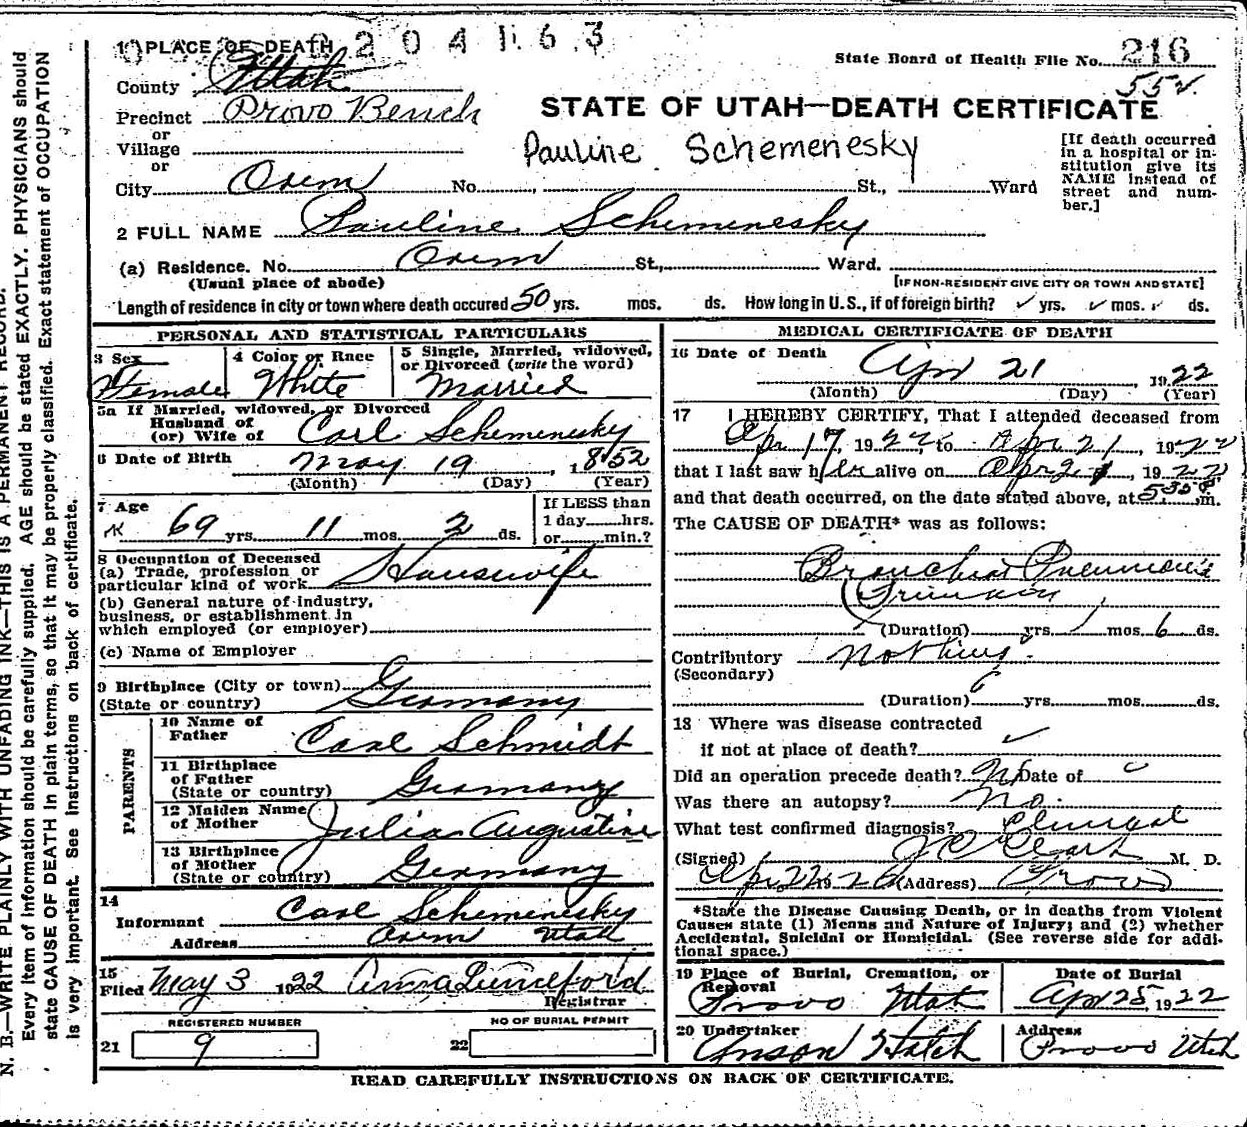 204163
1 PLACE OF DEATH
State Board of Health File No. 216
County Utah
552
Precinct Provo Bench
STATE OF UTAH—DEATH CERTIFICATE
or
Village
Pauline Schemenesky
[If death occurred in a hospital or institution give its NAME instead of street and number.]
or
City Orem No. , St., Ward
2 FULL NAME Pauline Schemenesky
(a) Residence. No. Orem St., Ward.
(Usual place of abode)
[IF NON-RESIDENT GIVE CITY OR TOWN AND STATE]
Length of residence in city or town where death occured 50 yrs. mos. ds. How long in U.S., if of foreign birth? ✓ yrs. ✓ mos. ✓ ds.
PERSONAL AND STATISTICAL PARTICULARS
3 Sex
Female
4 Color or Race
White
5 Single, Married, widowed, or Divorced (write the word)
Married
5a If Married, widowed, or Divorced
Husband of
(or) Wife of Carl Schemenesky
6 Date of Birth May 19, 1852
(Month) (Day) (Year)
7 Age
69 yrs. 11 mos. 2 ds.
If LESS than
1 day hrs.
or min.?
8 Occupation of Deceased
(a) Trade, profession or
particular kind of work Housewife
(b) General nature of industry,
business, or establishment in
which employed (or employer)
(c) Name of Employer
9 Birthplace (City or town)
(State or country) Germany
PARENTS
10 Name of
Father Carl Schmidt
11 Birthplace
of Father
(State or country) Germany
12 Maiden Name
of Mother Julia Augustine
13 Birthplace
of Mother
(State or country) Germany
14
Informant Carl Schemenesky
Address Orem Utah
15
Filed May 3 1922 Anna Lunceford
Registrar
REGISTERED NUMBER
21 9
NO OF BURIAL PERMIT
22
MEDICAL CERTIFICATE OF DEATH
16 Date of Death Apr 21, 1922
(Month) (Day) (Year)
17 I HEREBY CERTIFY, That I attended deceased from
Apr 17, 1922, to Apr 21, 1922
that I last saw her alive on Apr 21, 1922
and that death occurred, on the date stated above, at 5:35 P.m.
The CAUSE OF DEATH* was as follows:
Bronchial Pneumonia
(Duration) yrs. mos. 6 ds.
Contributory Nothing
(Secondary)
(Duration) yrs. mos. ds.
18 Where was disease contracted
if not at place of death? ✓
Did an operation precede death? No Date of
Was there an autopsy? No.
What test confirmed diagnosis? Clinical
(Signed) Clark M. D.
Apr 22 19 (Address) Provo
*State the Disease Causing Death, or in deaths from Violent
Causes state (1) Means and Nature of Injury; and (2) whether
Accidental, Suicidal or Homicidal. (See reverse side for additional space.)
19 Place of Burial, Cremation, or
Removal
Provo Utah
Date of Burial
Apr 25, 1922
20 Undertaker
Anson Hatch
Address
Provo Utah
READ CAREFULLY INSTRUCTIONS ON BACK OF CERTIFICATE.
N. B.—WRITE PLAINLY WITH UNFADING INK—THIS IS A PERMANENT RECORD.
Every item of information should be carefully supplied. AGE should be stated EXACTLY. PHYSICIANS should
state CAUSE OF DEATH in plain terms, so that it may be properly classified. Exact statement of OCCUPATION
is very important. See instructions on back of certificate.